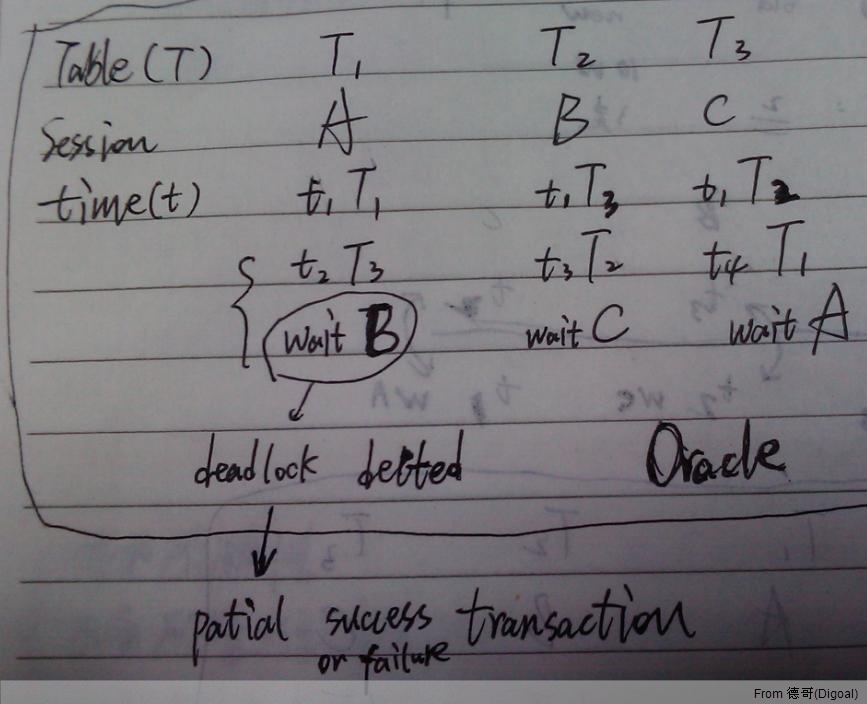 Table(T) T₁ T₂ T₃
Session A B C
time(t) t₁T₁ t₁T₃ t₁T₂
t₂T₃ t₃T₂ t₄T₁
wait B wait C wait A
deadlock Oracle
patial success transaction
or failure
From 德哥(Digoal)